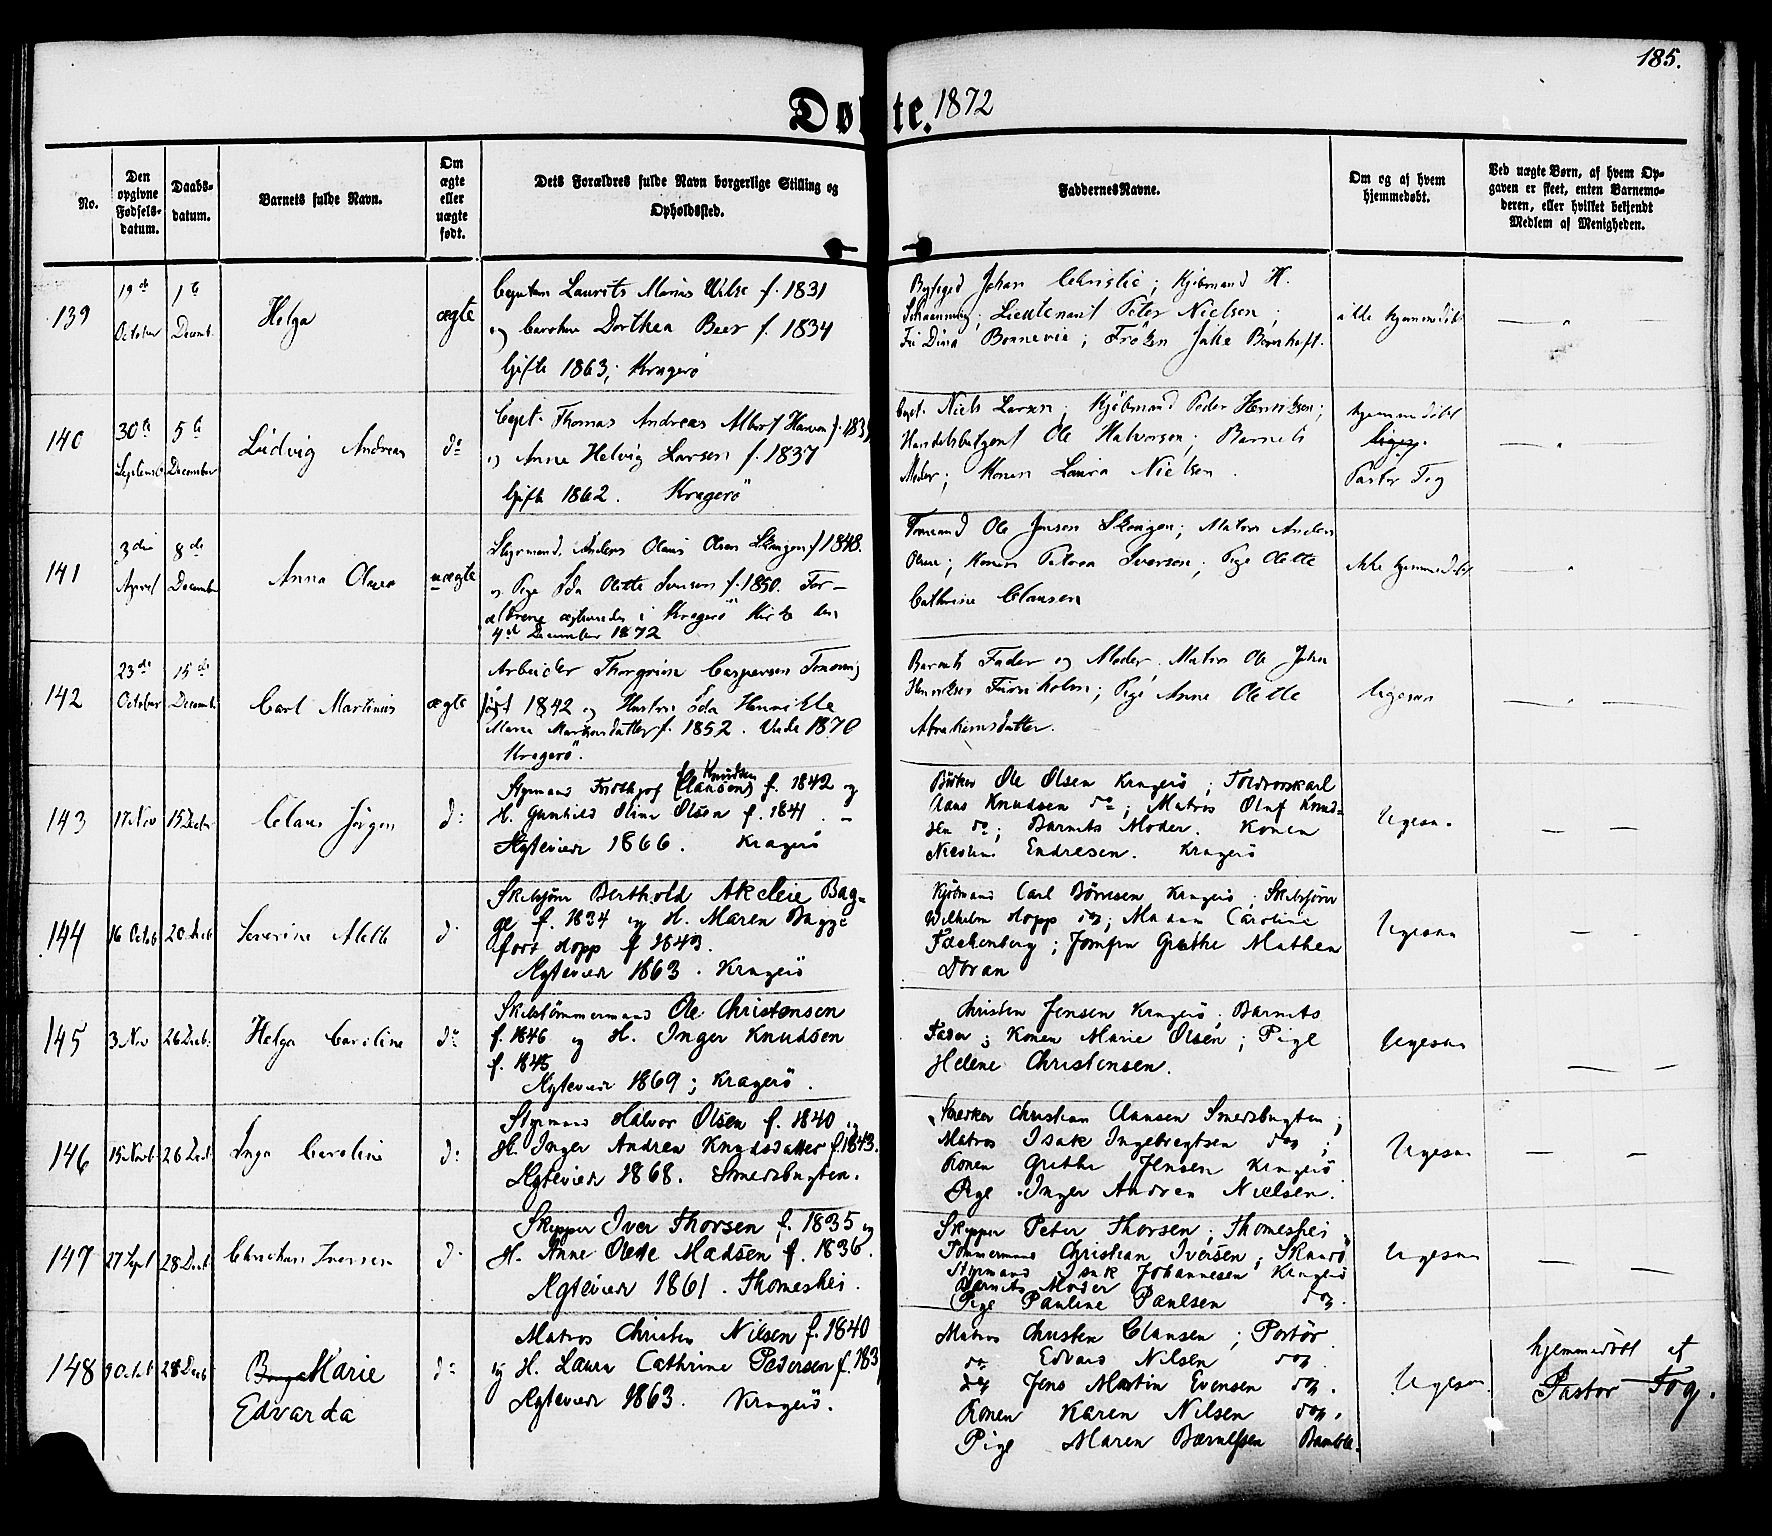 185.
Døbte. 1872
No.
Den opgivne Fødsels-datum.
Daabs-datum.
Barnets fulde Navn.
Om ægte eller uægte født.
Dets Forældres fulde Navn borgerlige Stilling og Opholdssted.
Faddernes Navne.
Om og af hvem hjemmedøbt.
Ved uægte Børn, af hvem Op-gaven er skeet, enten Barnemo-deren, eller hvilket bekjendt Medlem af Menigheden.
139
19de October
1te Decemb.
Helga
ægte
Laurits Marius Wilse f. 1831
og Caroline Dorthea Beer f. 1834
Gifte 1863; Kragerø
Byfoged Johan Christie; Kjøbmand H.
Lieutenant Peter Nielsen;
Dina Bonnevie; Frøken
ikke hjemmedøbt
140
30te September
5te December
Ludvig Andreas
do
Capt. Thomas Andreas Albert
og Anne Helvig Larsen f. 1837
Gifte 1862. Kragerö
Capt. Niels Larsen; Kjöbmand Peder Henriksen;
Ole Halvorsen; Barnets
Moder; Konen Laura Nielsen.
hjemmedöbt
Pastor Fog
141
3die April
8de December
Anna Olava
uægte
Styrmand. Anders Olaus Olsen Skougen f 1848.
og Pige Ida Olette Svensen f. 1850. For-
ældrene ægteviedes i Kragerö Kirke den
4de December 1872
Ole Jensen Skougen; Matros Anders
Olsen; Konen Petrea Iversen; Pige Olette
Cathrine Clausen
ikke hjemmedöbt
142
23de October
15de Decemb.
Carl Martinius
ægte
Arbeider Thorgrim Caspersen
født 1842 og Hustru Ida Henrikke
Maria f. 1852. Viede 1870
Kragerö.
Barnets Fader og Moder. Matros Ole Johan
Henriksen Furuholm; Pige Anne Olette
Abrahamsdatter.
Ugesaa
143
17 Nov
15 Decbr
Claus Jörgen
do
Styrmand Fridthjof (Clausen) Knudsen f. 1842 og
H. Gunhild Oline Olsen f. 1841. –
Ægteviede 1866. Kragerö
Bødker Ole Olsen Kragerö; Toldroerskarl
Aans Knudsen do; Matros Oluf Knud-
sen do; Barnets Moder. Konen
Nicoline Endresen. Kragerö
Ugesaa
144
16 Octob
20 Decb
Severine Mette
do
Skibsförer Berthold Akeleie Bag-
ge f. 1834 og H. Maren Bagge
født Hopp f 1843.
Ægteviede 1863. Kragerö
Kjöbmand Carl Börresen Kragerö; Skibsförer
Wilhelm Hopp do; Madam Caroline
Falckenberg; Jomfru Grethe Mathea
Doran
Ugesaa
145
3 Nov
26 Decb.
Helga Caroline
do
Skibstömmermand Ole Christensen
f. 1846 og H. Inger Knudsen
f. 1845
Ægteviede 1869; Kragerö.
Christen Jensen Kragerö; Barnets
Fader; Konen Marie Olsen; Pige
Helene Christensen.
Ugesaa
146
15 Novb
26 Decb
Inga Caroline
do
Styrmand Halvor Olsen f. 1840 og
H. Inger Andrea Knudsdatter f. 1843.
Ægteviede 1868. Smedsbugten.
Snedker Christian Clausen Smedsbugten;
Matros Isak Ingebregtsen do;
Konen Grethe Jensen Kragerö
Pige Inger Andrea Nielsen.
Ugesaa
147
27 Sept
28 Decb
Christian Iversen
do
Skipper Iver Thorsen f. 1835 og
H. Anne Olette Madsen f. 1836.
Ægteviede 1861. Thomeshei.
Skipper Peter Thorsen; Thomeshei;
Tömmermand Christian Iversen; Skaarö
Styrmand Isak Johannesen Kragerö
Barnets Moder
Pige Pauline Paulsen do.
Ugesaa
148
9 Octob
28 Decb
Marie
Edvarda
do
Matros Christen Nilsen f. 1840
og H. Laura Cathrine Pedersen f. 183
Ægteviede 1863. Kragerö.
Matros Christen Clausen; Portör
do Edvard Nilsen do.
do Jens Martin Evensen do.
Konen Karen Nilsen do.
Pige Maren Bærulfsen Bamble.
Ugesaa.
hjemmedöbt af
Pastor Fog.